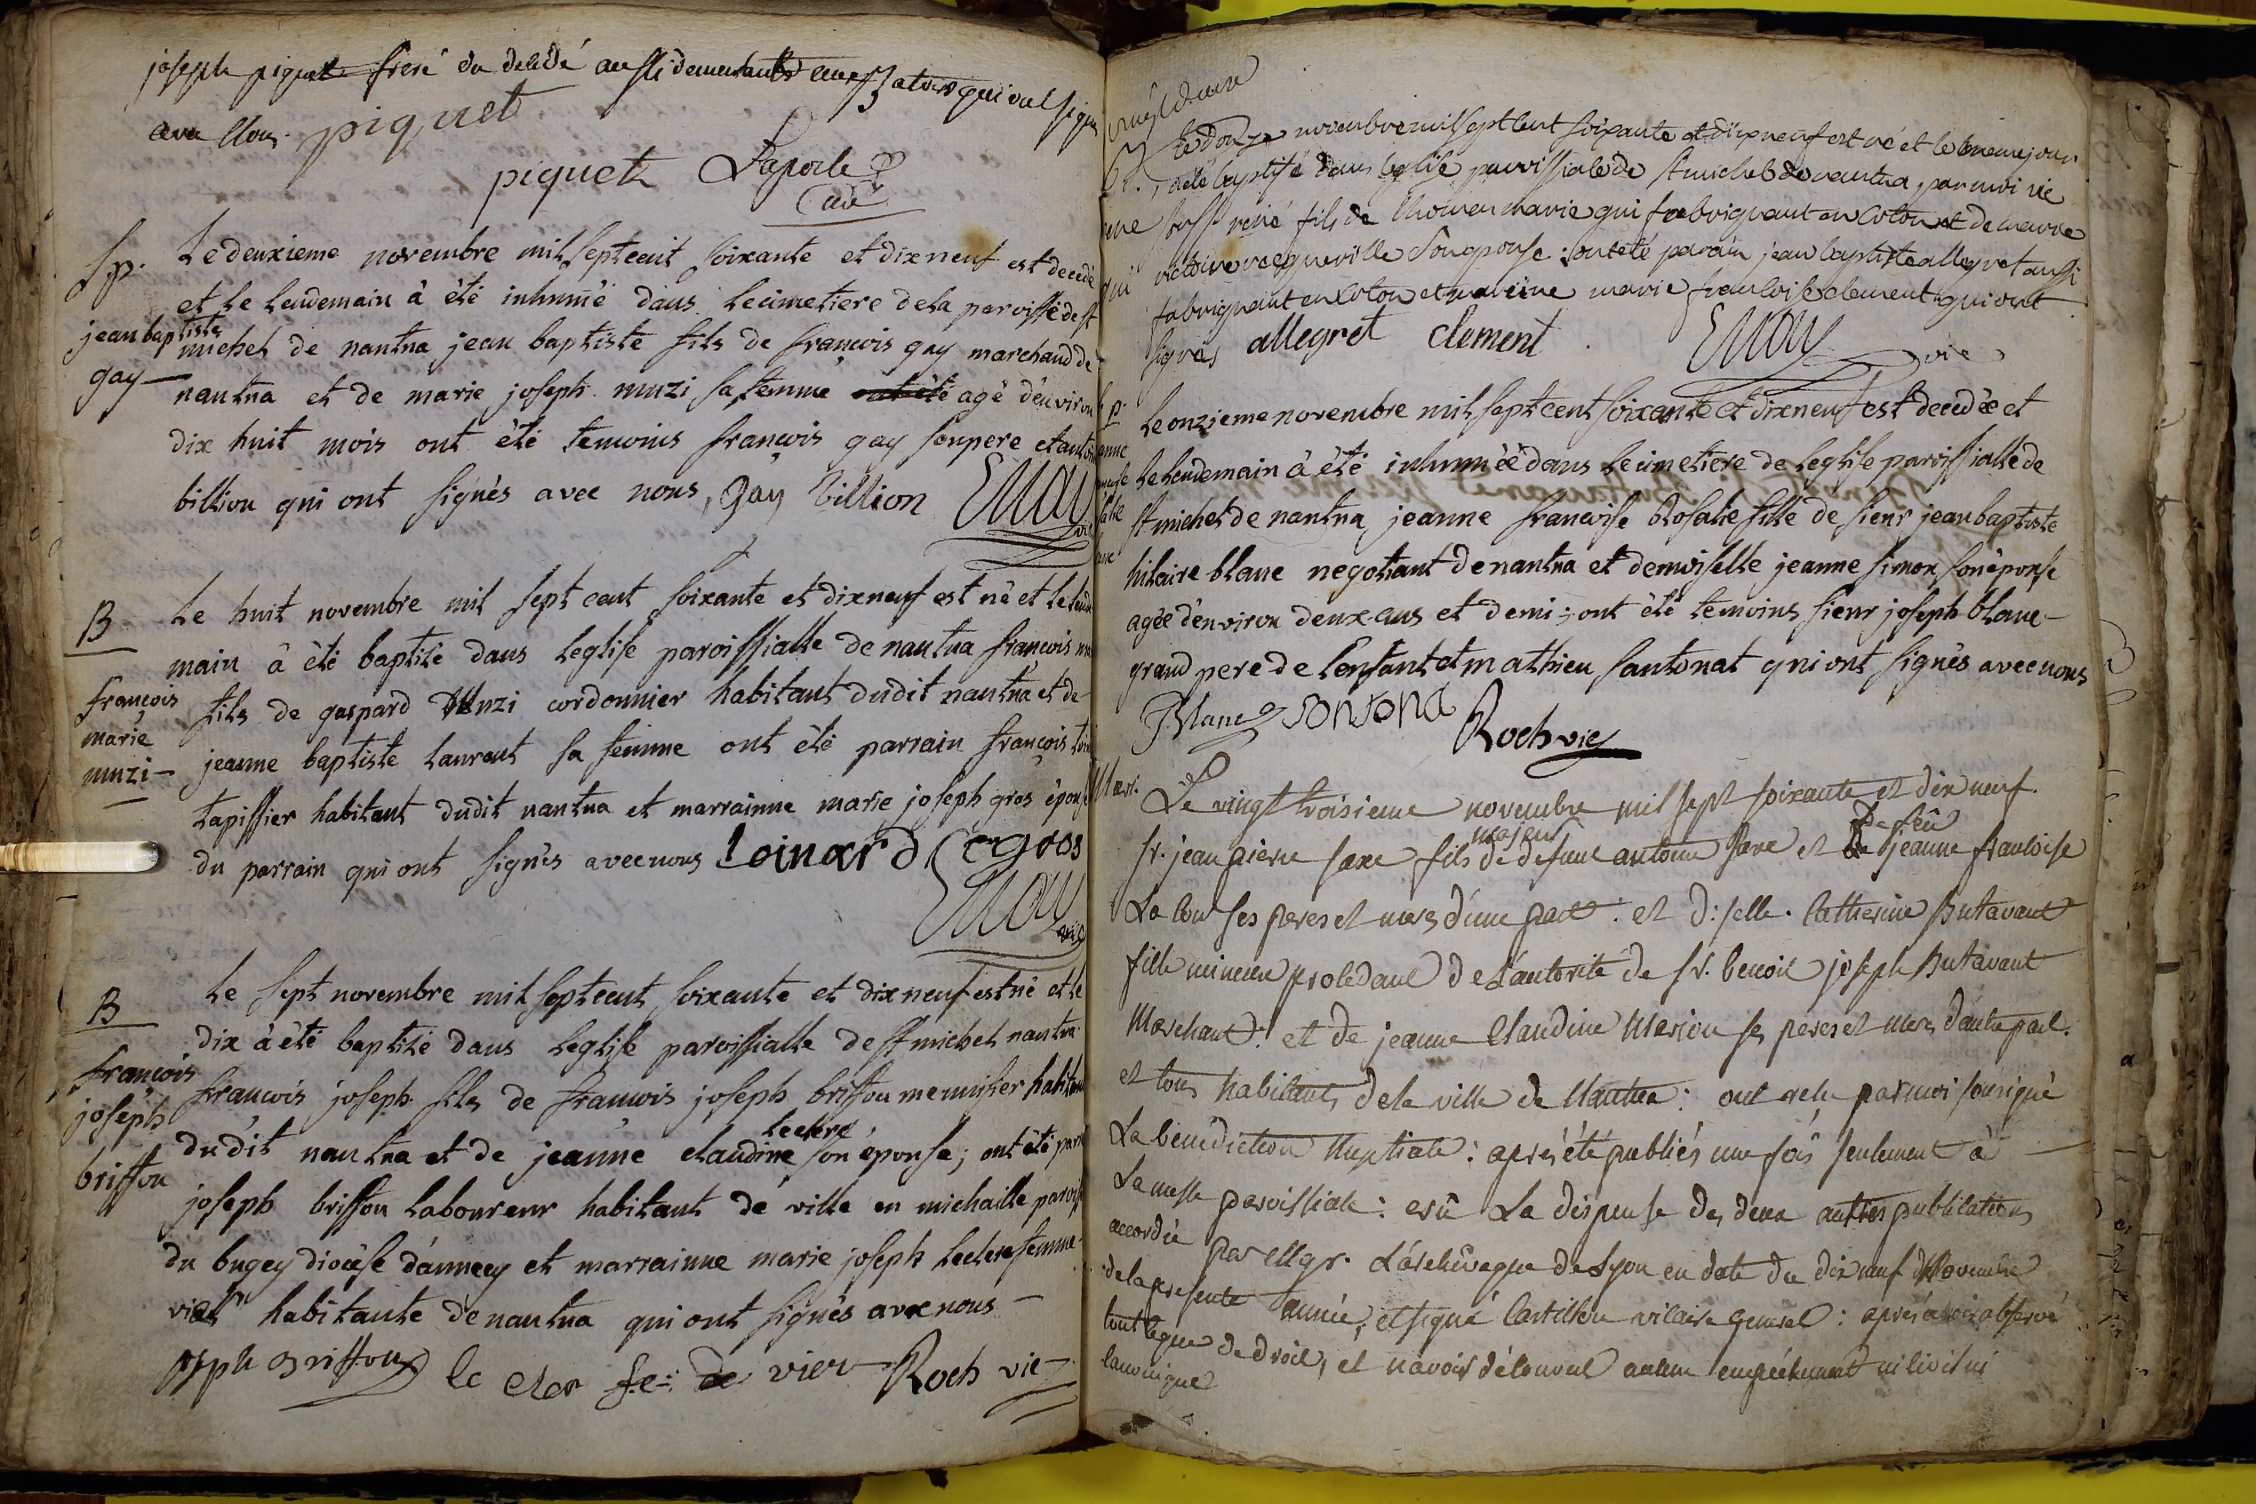 joseph piquet frere du decedé aussi demeurants qui ont signé
avec Nous. piquet
piquet Laporte
curé
Sp.
Le deuxieme novembre mil sept cent soixante et dix neuf est decedé
et le lendemain à été inhumé dans le cimetiere de la paroisse de st
jean baptiste
gay
michel de nantua jean baptiste fils de françois gay marchand de
nantua et de marie joseph muzi sa femme agé d'environ
dix huit mois ont été temoins françois gay son pere et
billion qui ont signés avec nous, Gay billion
B
Le huit novembre mil sept cent soixante et dix neuf est né et le
main à été baptisé dans l'eglise paroissialle de nantua françois
françois
marie
muzi
fils de gaspard Muzi cordonnier habitant dudit nantua et de
jeanne baptiste laurent sa femme ont été parrain françois
tapissier habitant dudit nantua et marrainne marie joseph gros épouse
du parrain qui ont signés avec nous Loinard gros
B
Le sept novembre mil sept cent soixante et dix neuf est né et le
dix à été baptisé dans l'eglise paroissialle de st michel nantua
françois
joseph
brisson
francois joseph fils de francois joseph brisson menuisier
leclerc
dudit nantua et de jeanne claudine son épouse; ont été
joseph brisson laboureur habitant de ville en michaille
du bugey diocèse d'annecy et marrainne marie joseph leclerc femme
habitante de nantua qui ont signés avec nous
brisson le cler fe: de vier Roch vic
Le douze novembre mil sept cent soixante et dix neuf est né et le meme jour
a été baptisé dans l'eglise paroissiale de st michel de nantua, par moi vic
souss rené fils de thomas marie qui fabriquant en coton et de marie
victoire vacqueville son epouse: ont été parain jean baptiste allegret aussi
fabriquant en coton et maraine marie francoise clement qui ont
signés allegret clement vic
Le onzieme novembre mil sept cent soixante et dix neuf est decedée et
le lendemain à été inhumée dans le cimetiere de l'eglise paroissialle de
st michel de nantua jeanne francoise Rosalie fille de sieur jean baptiste
hilaire blanc negotiant de nantua et demoiselle jeanne simon son épouse
agée d'environ deux ans et demi; ont été temoins sieur joseph blanc
grand pere de l'enfant et mathieu santonat qui ont signés avec nous
Blanc sontona
Roch vic
Mar.
Le vingt troisieme novembre mil sept soixante et dix neuf.
majeur de feû
Sr. jean pierre saxe fils de defunt antoine saxe et jeanne francoise
La cou ses peres et meres d'une part: et d:selle. Catherine Butavant
fille mineure procedant de l'autorité de sr. benoit joseph Butavant
Marchant: et de jeanne Claudine Marion ses peres et meres d'autre part.
et tous habitants de la ville de Nantua: ont reçu par moi soussigné
La benédiction Nuptiale: après été publiés une fois seulement à
La messe paroissiale: et û La dispense des deux autres publications
accordée par Mgr. L'archevêque de Lyon en date du dix neuf Novembre
de la presente année, et signé Castillon vicaire General: après avoir observé
tout ce que de droit, et n'avoir découvert aucun empêchement ni civil ni
canonique